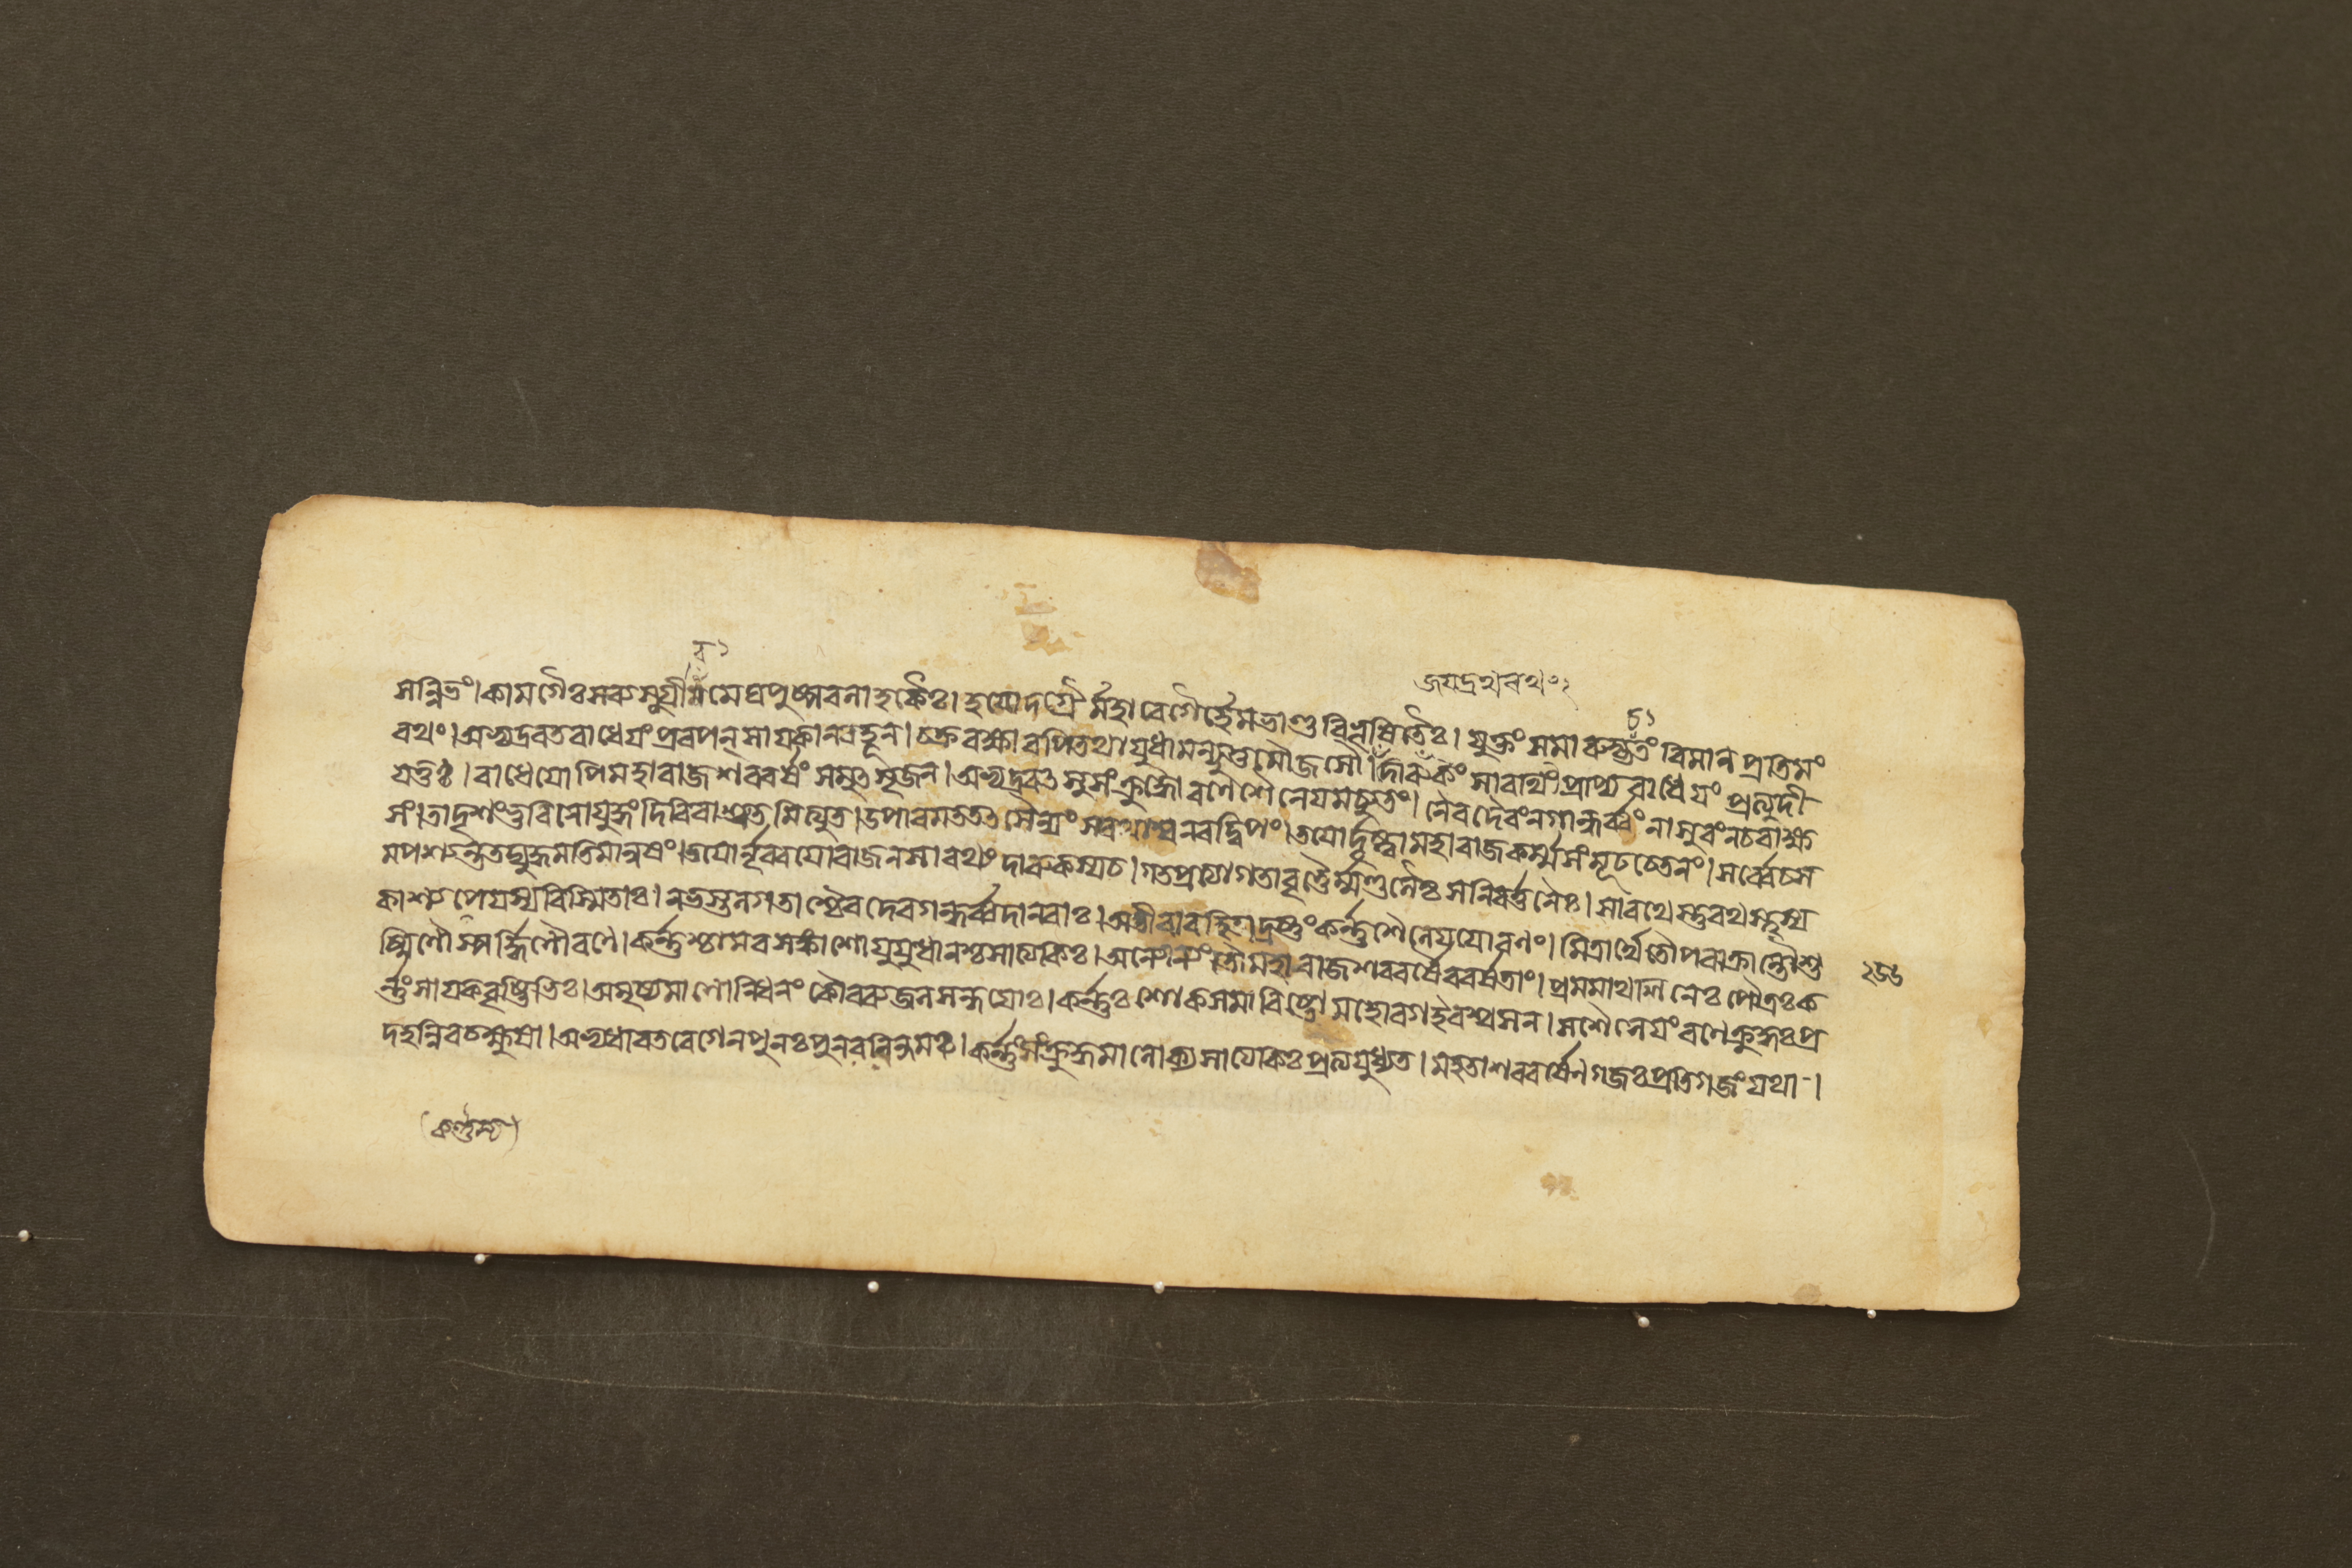 জয়দ্রথবধঃ২
সন্নিভং।কামগৈঃসবসুগ্রীবমেঘপুষ্পবলাহকৈঃ। হয়োদগ্রৈর্মহাবেগৈর্হেমভাণ্ডবিভূষিতৈঃ। যুক্তং সমারুহ্যতং বিমানপ্রতিমং
রথং।অভ্যদ্রবতরাধেয়ংপ্রবপন্সায়কান্বহূন্।চক্ররক্ষাবপিতথাযুধামন্যূত্তমৌজসৌ। প্রত্যুদী
যতুঃ।রাধেয়োপিমহারাজশরবর্ষংসমুত্সৃজন্।অভ্যদ্রবত্সুসংক্রুদ্ধোরণেশৈনেয়মচ্যুতং। নৈবদৈবংনগান্ধর্ব্বংনাসুরংনচরাক্ষ
সং।তাদৃশংভুবিনোযুদ্ধংদিবিবাশ্রুতমিত্যুত।উপারমততত্সৈন্যংসরথাশ্বনরদ্বিপং।তয়োর্দৃষ্ট্বামহারাজকর্ম্মসংমূঢচেতনং।সর্ব্বেচস
মপশ্যন্ততদ্যুদ্ধমতিমানুষং।তয়োর্নৃবরয়োরাজন্সারথ্যংদারুকস্যচ।গতপ্রত্যাগতাবৃত্তৈর্ম্মণ্ডলৈঃসন্নিবর্ত্তনৈঃ।সারথেস্তুরথস্থস্য
কাশ্যপেয়স্যবিস্মিতাঃ।নভস্তলগতাশ্চৈবদেবগন্ধর্ব্বদানবাঃ।অতীবাবহিতাদ্রষ্টুংকর্ণ্ণশৈনেয়য়োরণং।মিত্রার্থেতৌপরাক্রান্তৌশু
ষ্মিণৌস্পর্দ্ধিনৌরণে।কর্ণ্ণশ্চামরসঙ্কাশোযুযুধানশ্চসাত্যকিঃ।অন্যোন্যংতৌমহারাজশরবর্ষৈরবর্ষতাং।প্রমমাথ পৌত্রঃক
র্ণ্ণংসায়কবৃষ্টিভিঃ।অমৃষ্যমাণোনিধনংকৌরব্যজলসন্ধয়োঃ।কর্ণ্ণঃশোকসমাবিষ্টোমহোরগইবশ্বসন্।সশৈনেয়ংরণেক্রুদ্ধঃপ্র
দহন্নিবচক্ষুষা।অভ্যধাবতবেগেনপুনঃপুনররিন্দমঃ।কর্ণ্ণংসংক্রুদ্ধমালোক্যসাত্যকিঃপ্রত্যযুধ্যত।মহতাশরবর্ষেণগজঃপ্রতিগজংযথা।